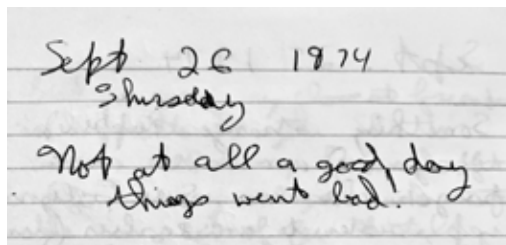 Sept. 26 1974
Thursday
Not at all a good day
things went bad!